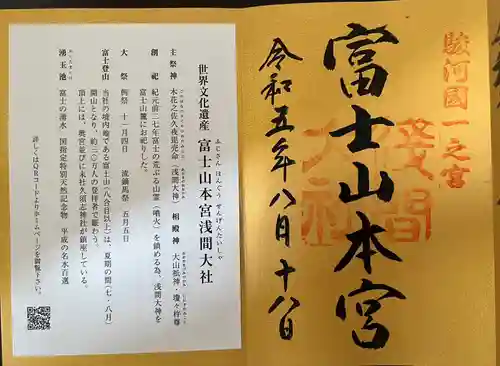 駿河國一之宮
浅間大社
富士山本宮
令和五年八月十八日
世界文化遺産 富士山本宮浅間大社
ふじさんほんぐうせんげんたいしゃ
主祭神 木花之佐久夜毘売命（浅間大神） 相殿神 大山祇神・瓊々杵尊
創祀 紀元前二七年富士の荒ぶる山霊（噴火）を鎮める為、浅間大神を
富士山麓にお祀りした。
大祭 例祭 十一月四日 流鏑馬祭 五月五日
富士登山 当社の境内地である富士山（八合目以上）は、夏期の間（七・八月）
開山となり、約三〇万人の登拝者で賑わう。
頂上には、奥宮並びに末社久須志神社が鎮座している。
湧玉池 富士の湧水 国指定特別天然記念物 平成の名水百選
詳しくはQRコードよりホームページを御覧下さい。